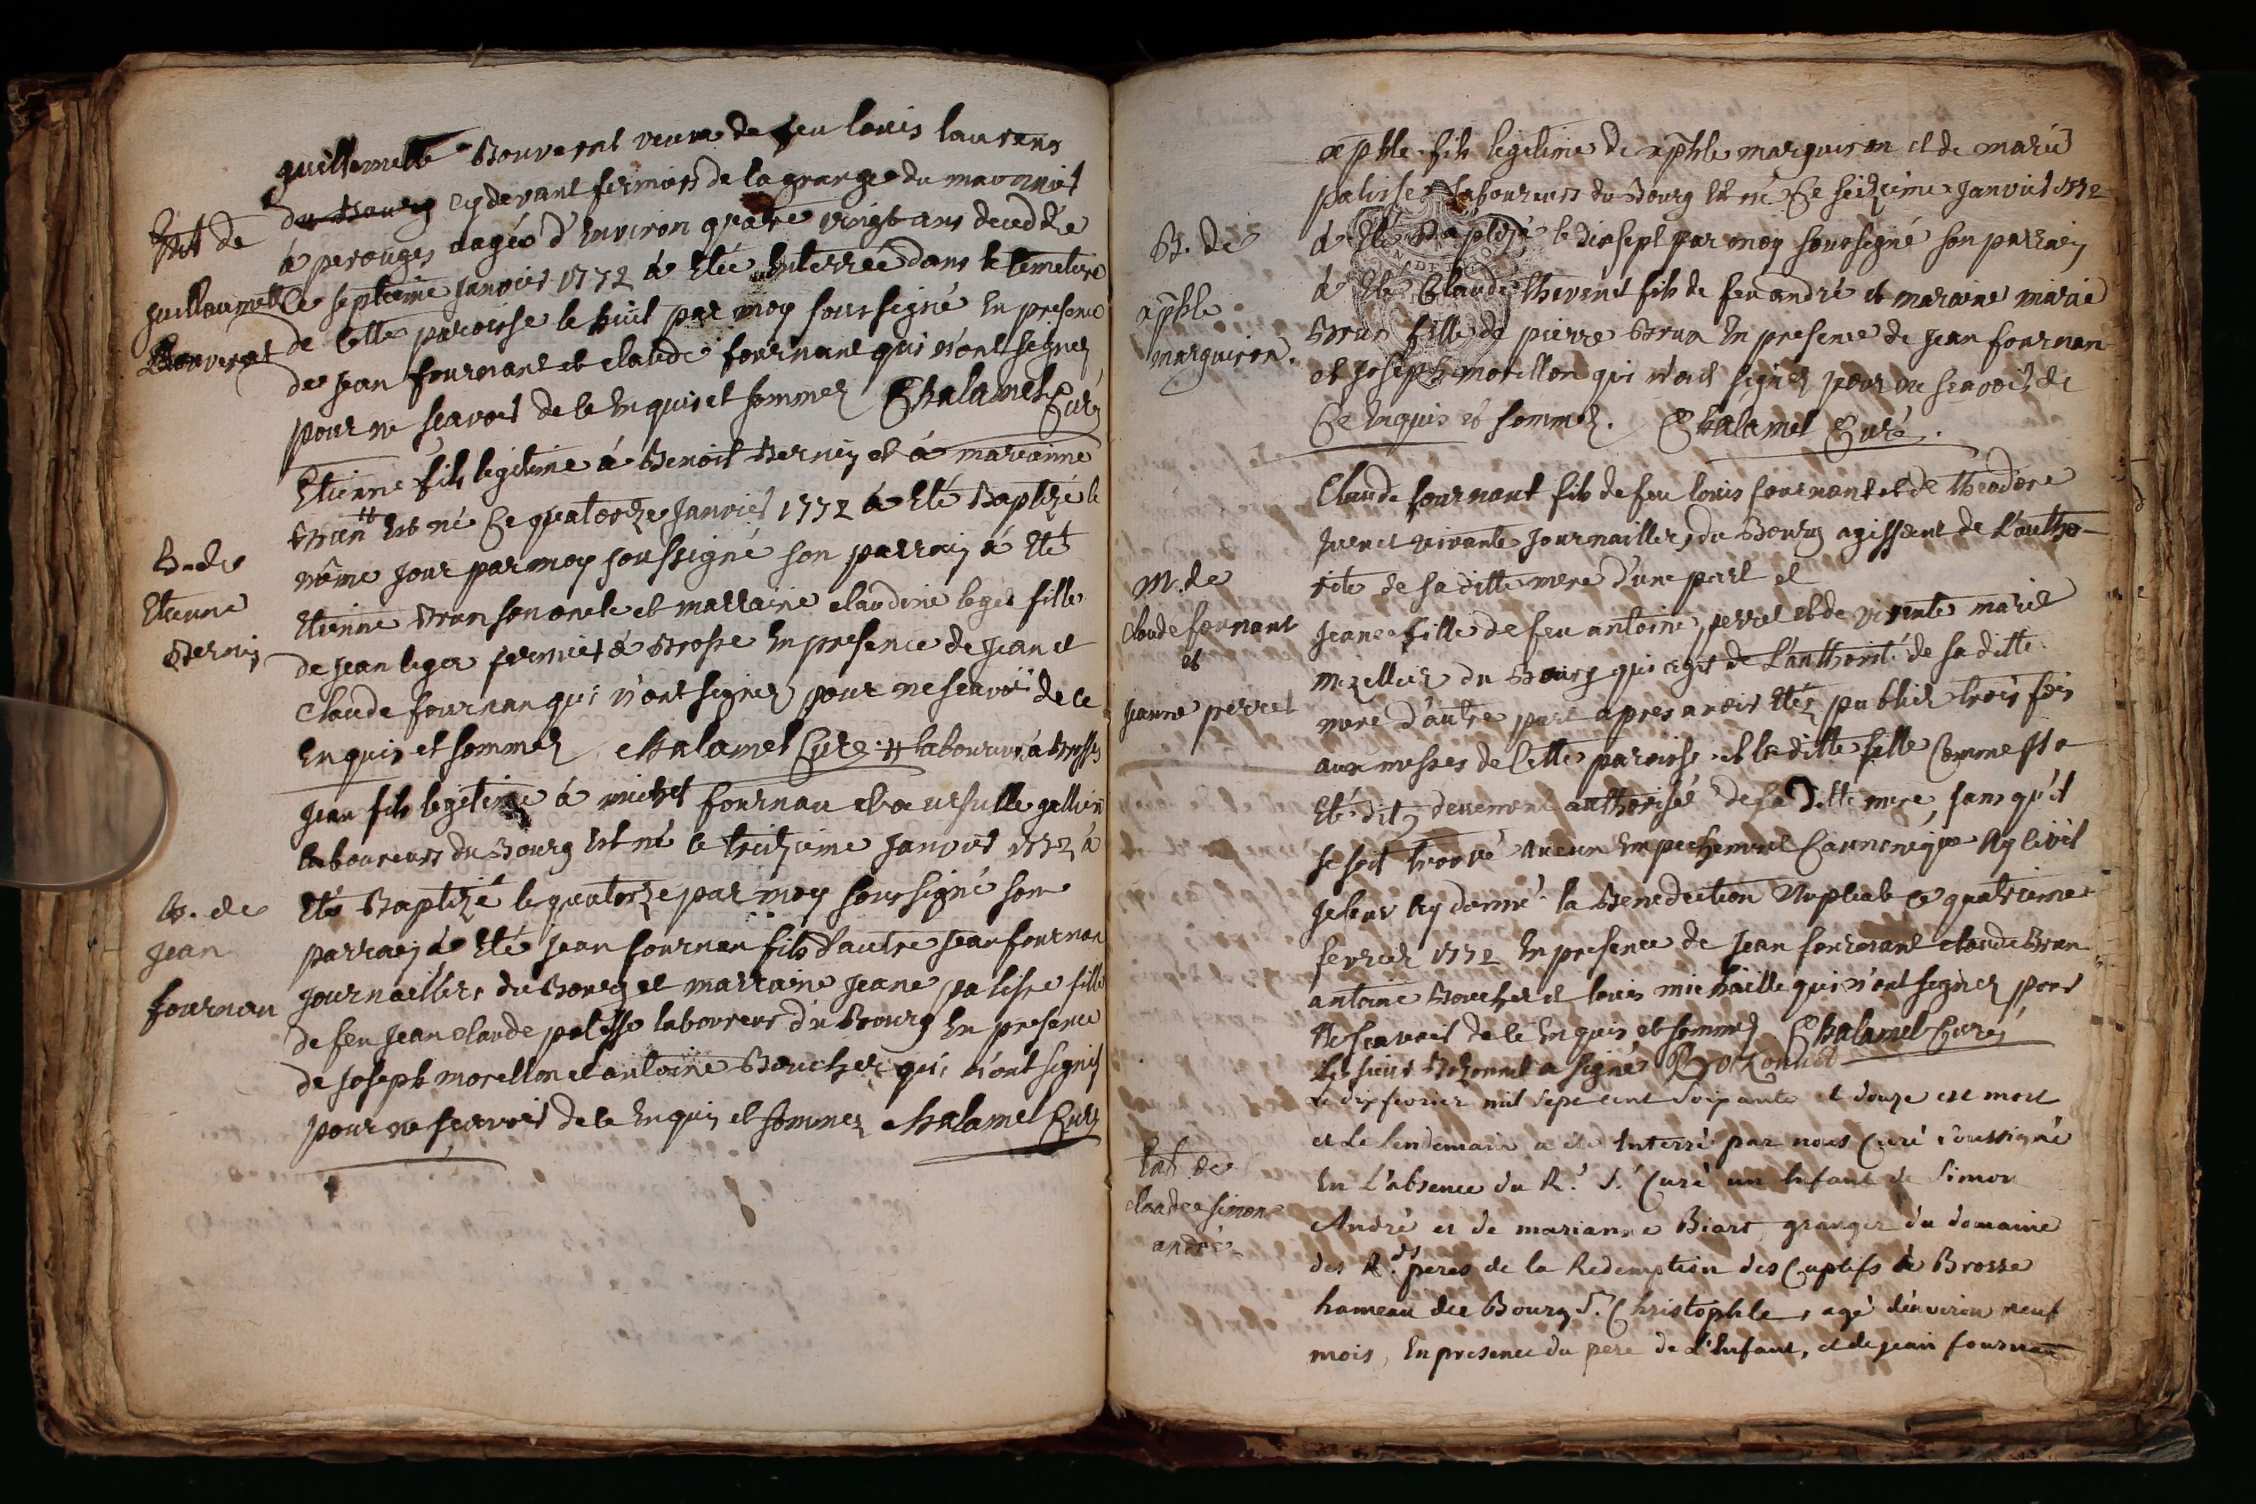 guillemette Bouverat veuve de feu louis laurens
du Bourg cy devant fermiers de la grange du mavonnot
Ent de
à perouges aagée d'Environ quatre vingt ans decedée
guillaumette
Bouverat
le septieme janvier 1772 à Eté Enterrée dans le cemetiere
de Cette paroisse le huit par moy soussigné En presence
de jean fournant et claude fournant qui n'ont signez
pour ne scavoir de ce Enquis et sommez Chalamel Curé
B. de
Etienne
Bernin
Etienne fils legitime à Benoit Bernin et à marianne
Brun # Est né Ce quatorze janvier 1772 à Eté Baptizé le
même jour par moy soussigné son parrain à Eté
Etienne Brun son oncle et marraine claudine leger fille
de jean leger fermier à Brosse En presence de jean et
claude fournan qui n'ont signez pour ne scavoir de ce
Enquis et sommez Chalamel Curé # laboureurs à Brosse
B. de
jean
fournan
jean fils legitime à michel fournan et à ursulle gallien
laboureurs du Bourg Est né le treizieme janvier 1772 à
Eté Baptizé le quatorze par moy soussigné son
parrain à Eté jean fournan fils d'autre jean fournan
journailliers du Bourg et marraine jeane palisse fille
de feu jean claude palisse laboureur du Bourg En presence
de joseph morellon et antoine Boucher qui n'ont signés
pour ne scavoir de ce Enquis et sommez Chalamel Curé
B. de
xphle
marguiron.
xphle fils legitime de xphle marguiron et de marie
palisse laboureurs du Bourg Est né Ce seizieme janvier 1772
à Eté Baptizé le dixsept par moy soussigné son parrain
à Eté Claude thevenet fils de feu andré et maraine marie
Brun fille de pierre Brun En presence de jean fournan
et joseph morellon qui n'ont signez pour ne scavoir de
Ce Enquis et sommez. Chalamel Curé.
M. de
claude fournant
et
jeanne perret
Claude fournant fils de feu louis fournant et de theodore
vivante journailliers du Bourg agissant de L'autho-
rité de sa ditte mere d'une part et
jeane fille de feu antoine perret et de vivante marie
du Bourg qui agit de L'authorité de sa ditte
mere d'autre part apres avoir Etés publiez trois fois
aux messes de Cette paroisse et la ditte fille Comme il a
Eté dit, deuement authorisée de sa ditte mere, sans qu'il
se soit trouvé aucun Empechement Cannonique Ny Civil
je leur Ay donné la Benediction Nuptiale Ce quatrieme
fevrier 1772 En presence de jean fournant claude Brun
antoine Boucher et louis michaille qui n'ont signez pour
Ne scavoir de Ce Enquis et sommez Chalamel Curé
Le sieur Bozonnet a signé Bozonnet
Ent de
claude simon
andré
Le dix fevrier mil sept cent soixante et douze est mort
et Le lendemain a été Enterré par nous Curé soussigné
En L'absence du R.d S.r Curé un Enfant de Simon
André et de marianne Biart, granger du domaine
des R.ds peres de la Redemption des Captifs de Brosse
hameau du Bourg S.t Christophle, agé d'environ neuf
mois, En presence du pere de L'Enfant, et de jean fournan